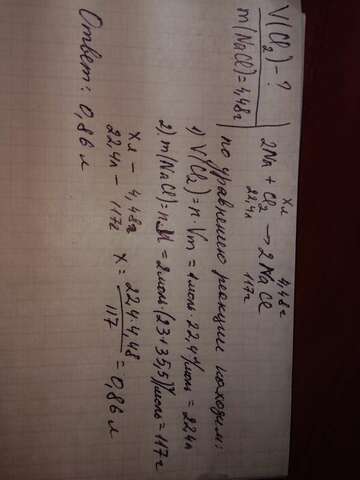 V(Cl₂) - ?
m(NaCl)=4,48г
Xл 4,48г
2Na + Cl₂ → 2NaCl
22,4л 117г
по уравнению реакции находим:
1) V(Cl₂) = n · Vm = 1моль · 22,4л/моль = 22,4л
2) m(NaCl) = n·M = 2моль·(23+35,5)г/моль = 117г
Xл - 4,48г
22,4л - 117г X = 22,4·4,48 / 117 = 0,86 л
Ответ: 0,86 л